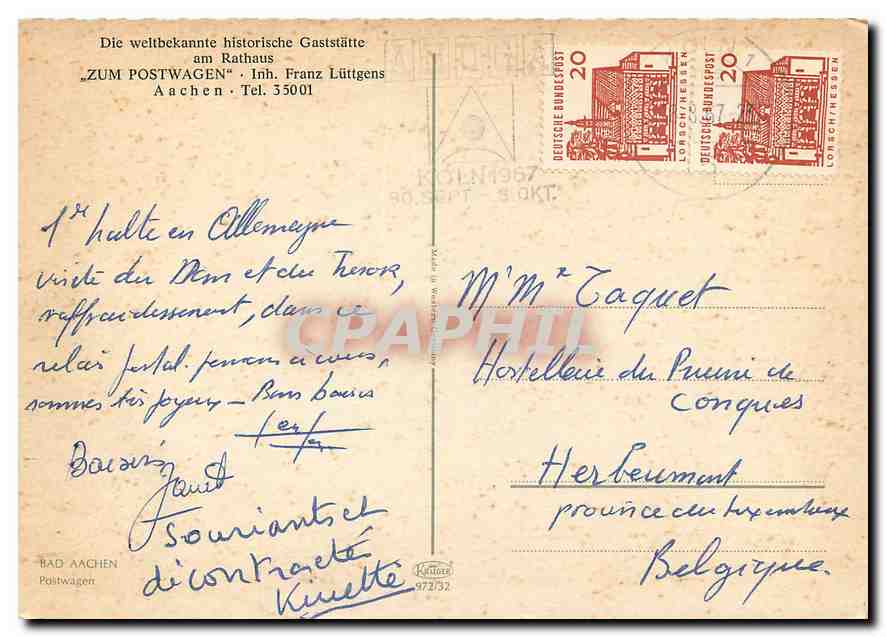 Die weltbekannte historische Gaststätte
am Rathaus
„ZUM POSTWAGEN“ · Inh. Franz Lüttgens
Aachen · Tel. 35001
DEUTSCHE BUNDESPOST
20
LORSCH/HESSEN
DEUTSCHE BUNDESPOST
20
LORSCH/HESSEN
KÖLN 1967
30. SEPT 8. OKT.
1re halte en Allemagne
visite du Dom et du Tresor,
raffraidessement, dans ce
relais postal. pensons à vous,
sommes très joyeux – Bons baisers
Baisers
Souriants et
décontractés
Made in Western Germany
M' Mme Taquet
Hostellerie du Prieuré de
Conques
Herbeumont
province du Luxembourg
Belgique.
BAD AACHEN
Postwagen
KRÜGER
972/32
CPAPHIL